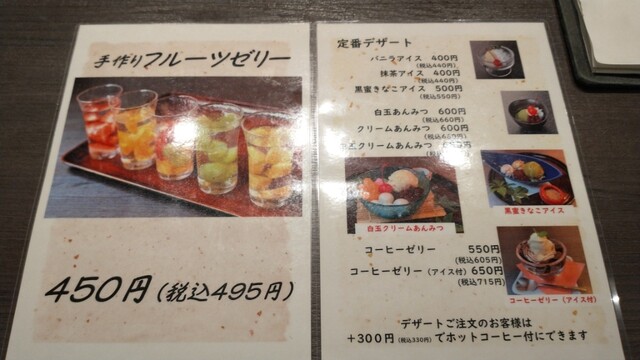 手作りフルーツゼリー
450円(税込495円)
定番デザート
バニラアイス 400円
(税込440円)
抹茶アイス 400円
(税込440円)
黒蜜きなこアイス 500円
(税込550円)
白玉あんみつ 600円
(税込660円)
クリームあんみつ 600円
(税込660円)
クリームあんみつ
白玉クリームあんみつ
黒蜜きなこアイス
コーヒーゼリー 550円
(税込605円)
コーヒーゼリー(アイス付) 650円
(税込715円)
コーヒーゼリー(アイス付)
デザートご注文のお客様は
+300円(税込330円)でホットコーヒー付にできます